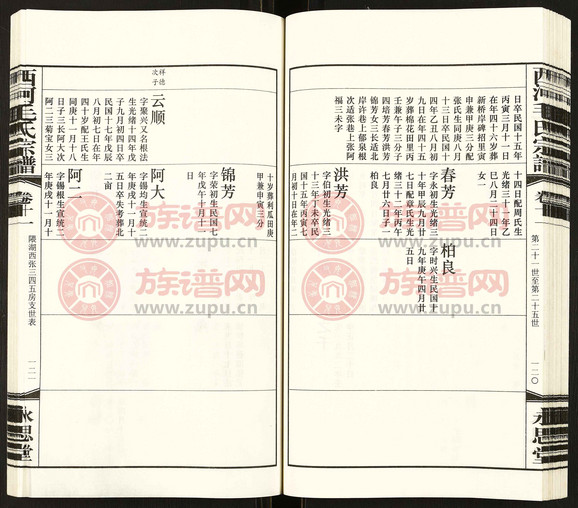 西河毛氏宗谱
卷十一
第二十一世至第二十五世
一二〇
永思堂
日卒民国十五年
丙寅三月十一日
在年四十六岁葬
新桥岸碑招里寅
甲兼申庚三分配
张氏生同庚八月
十三日卒民国十
四年乙丑八月初
九日在年四十五
岁葬棉花田里丙
壬兼午子三分子
四培芳春芳洪芳
锦芳女三长适北
岸许巷上郁泉根
次适张巷上张阿
福三未字
十四日配周氏生
光绪三十一年乙
巳八月二十四日
女一
春芳
字永初生光绪三
十年甲辰九月廿
七日配章氏生光
绪三十二年丙午
七月廿六日子一
柏良
柏良
字时兴生民国十
九年庚午四月廿
五日
洪芳
字伯初生光绪三
十三年丁未卒民
国十五年丙寅七
月初十日在年二
十岁葬利瓜田庚
甲兼申寅三分
锦芳
字荣初生民国七
年戊午十月十一
日
祥德
次子
云顺
字聚兴又名根法
生光绪十四年戊
子九月初四日卒
民国十七年戊辰
八月初七日在年
四十岁配王氏生
同庚十一月十八
日子三长阿大次
阿二三菊宝女三
阿大
字锡均生宣统二
年庚戌十一月十
五日卒失考葬北
二亩
阿二
字锡根生宣统二
年庚戌十一月十
西河毛氏宗谱
卷十一
隈湖西张三四五房支世表
一二一
永思堂
族谱网
www.zupu.cn
族谱网
www.zupu.cn
族谱网
www.zupu.cn
族谱网
www.zupu.cn